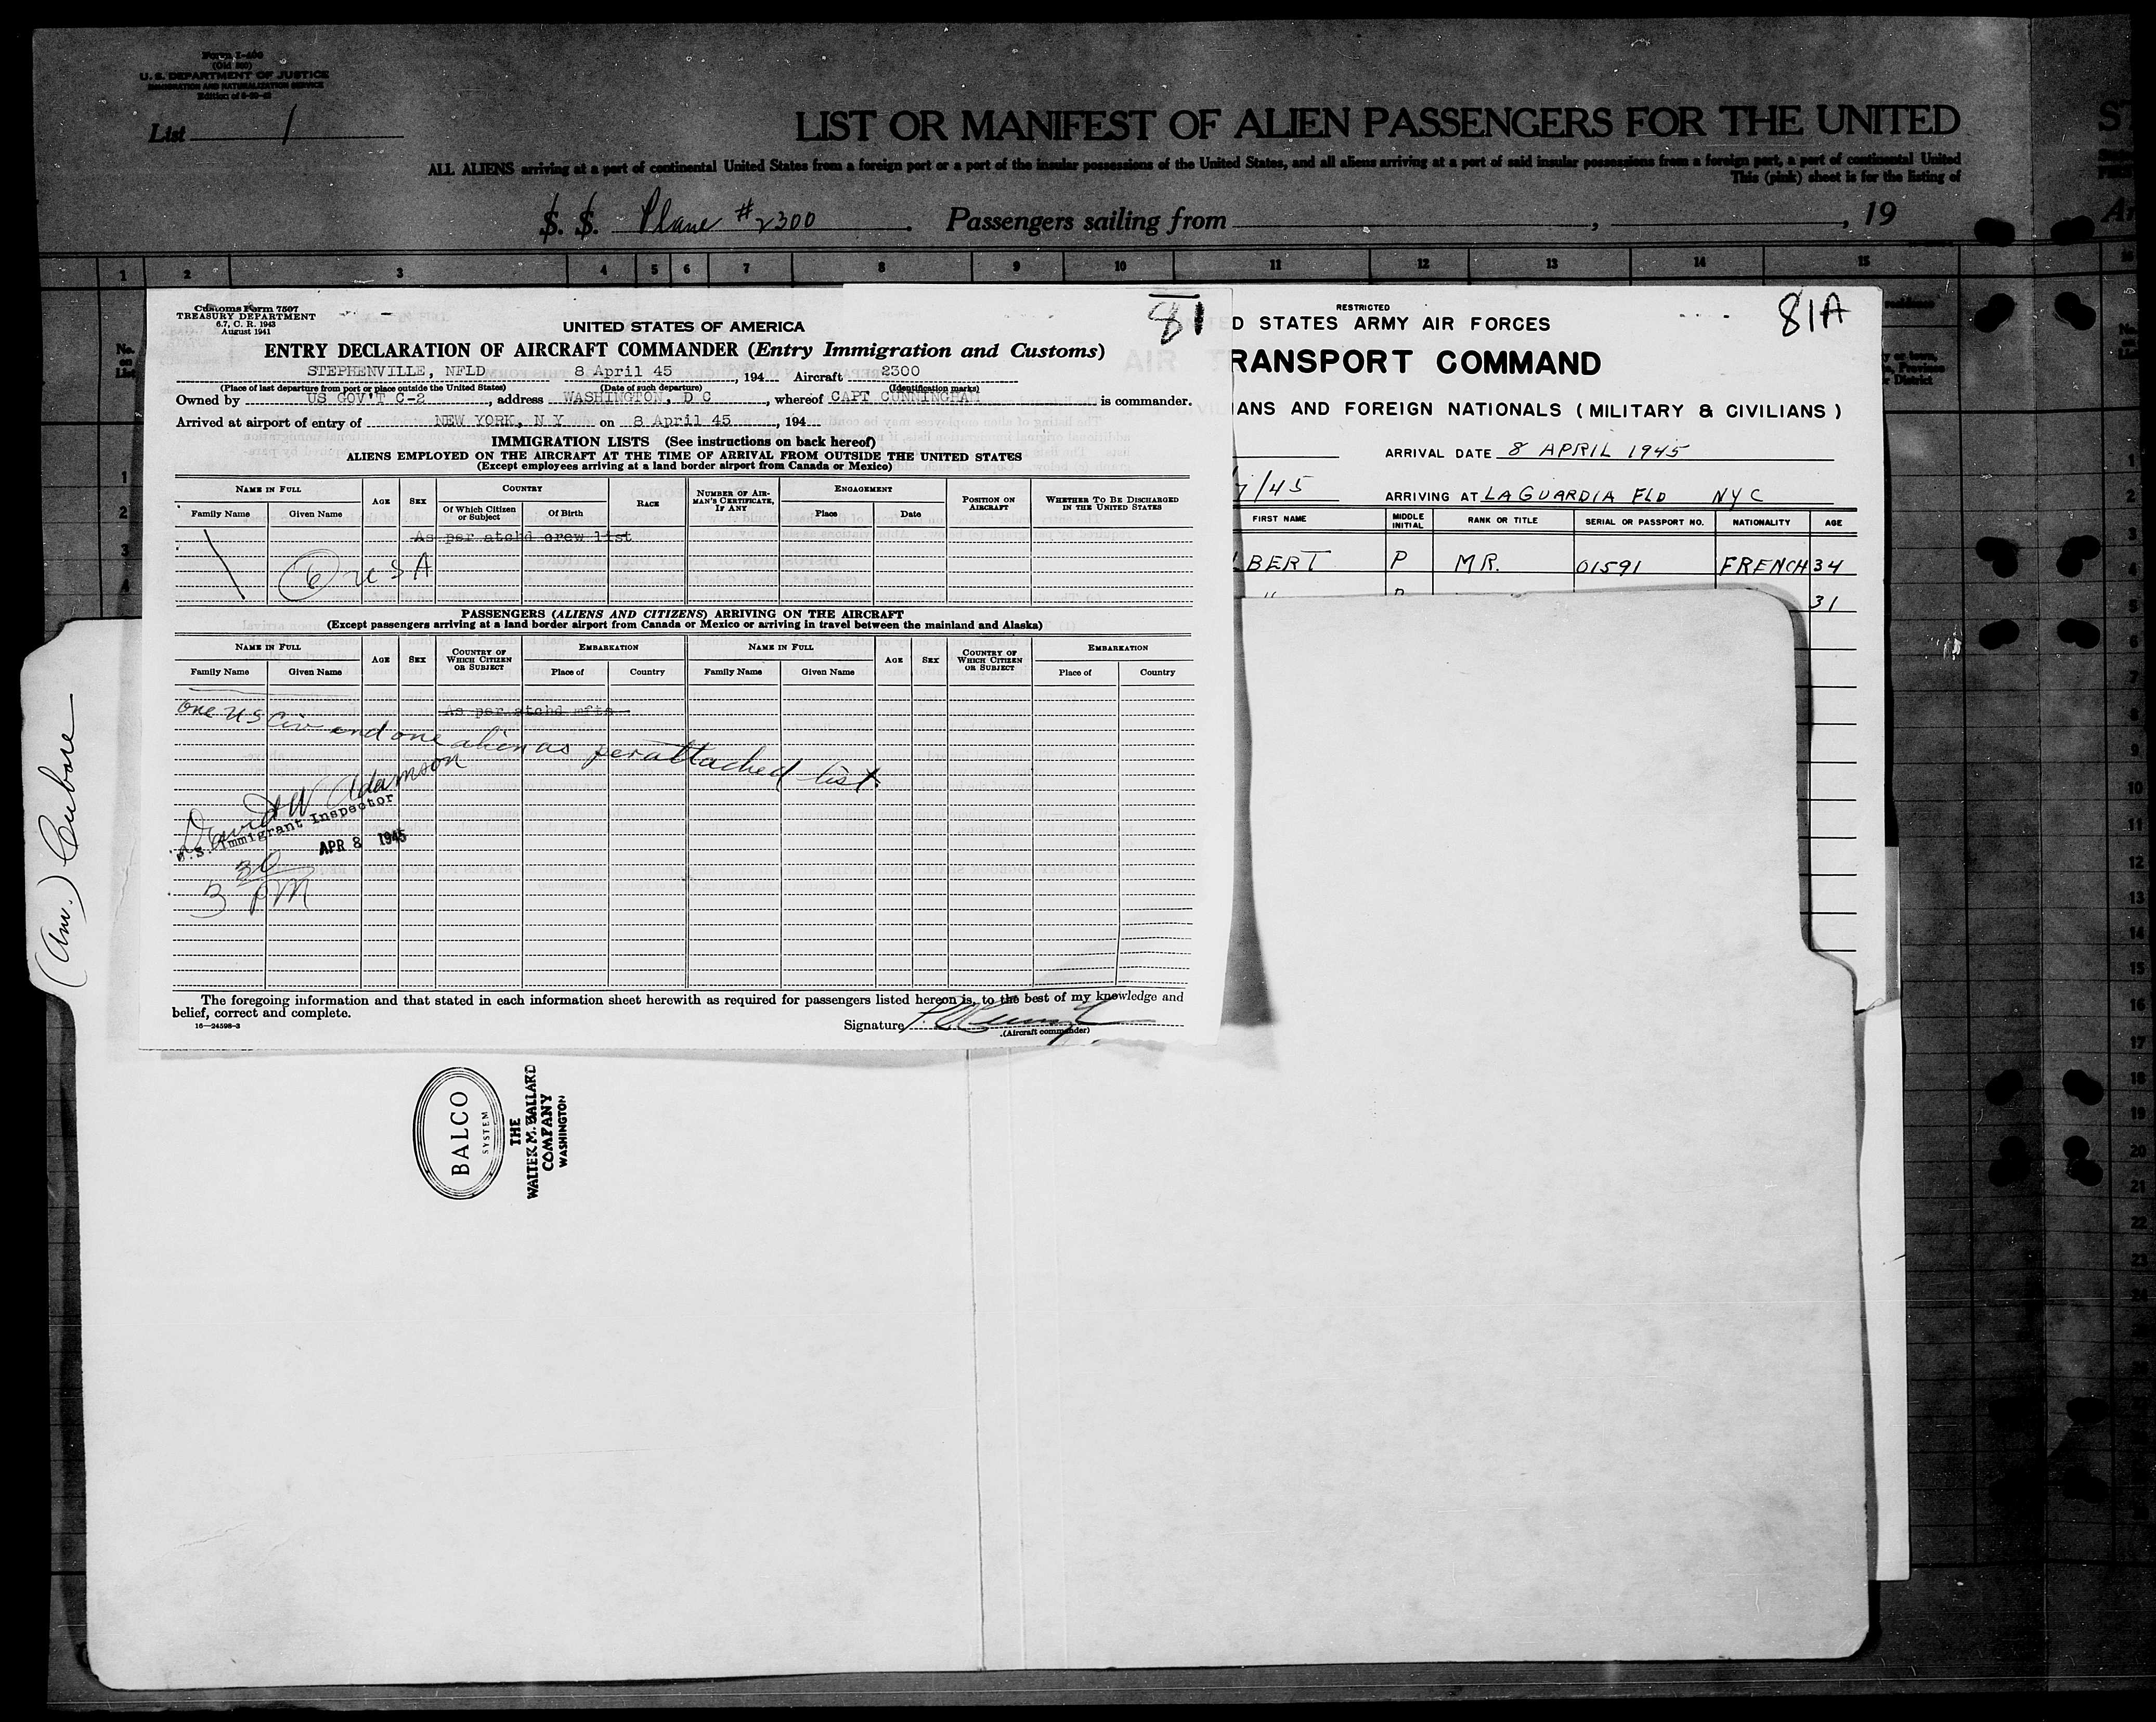 Form I-400
(Old 500)
U. S. DEPARTMENT OF JUSTICE
IMMIGRATION AND NATURALIZATION SERVICE
List 1
LIST OR MANIFEST OF ALIEN PASSENGERS FOR THE UNITED
ALL ALIENS arriving at a port of continental United States from a foreign port or a port of the insular possessions of the United States, and all aliens arriving at a port of said insular possessions from a foreign port, a port of continental United
This (pink) sheet is for the listing of
S. S. Plane #2300 . Passengers sailing from , , 19
1 2 3 4 5 6 7 8 9 10 11 12 13 14 15
No. on List
Customs Form 7507
TREASURY DEPARTMENT
6.7, C. R. 1943
August 1941
81
UNITED STATES OF AMERICA
ENTRY DECLARATION OF AIRCRAFT COMMANDER (Entry Immigration and Customs)
STEPHENVILLE, NFLD 8 April 45 , 194 Aircraft 2300
(Place of last departure from port or place outside the United States) (Date of such departure) (Identification marks)
Owned by US GOV'T C-2 , address WASHINGTON, D C , whereof CAPT CUNNINGHAM is commander.
Arrived at airport of entry of NEW YORK, N Y on 8 April 45 , 194
IMMIGRATION LISTS (See instructions on back hereof)
ALIENS EMPLOYED ON THE AIRCRAFT AT THE TIME OF ARRIVAL FROM OUTSIDE THE UNITED STATES
(Except employees arriving at a land border airport from Canada or Mexico)
NAME IN FULL AGE SEX COUNTRY RACE NUMBER OF AIRMAN'S CERTIFICATE, IF ANY ENGAGEMENT POSITION ON AIRCRAFT WHETHER TO BE DISCHARGED IN THE UNITED STATES
Family Name Given Name Of Which Citizen or Subject Of Birth Place Date
As per atchd crew list
6 USA
PASSENGERS (ALIENS AND CITIZENS) ARRIVING ON THE AIRCRAFT
(Except passengers arriving at a land border airport from Canada or Mexico or arriving in travel between the mainland and Alaska)
NAME IN FULL AGE SEX COUNTRY OF WHICH CITIZEN OR SUBJECT EMBARKATION NAME IN FULL AGE SEX COUNTRY OF WHICH CITIZEN OR SUBJECT EMBARKATION
Family Name Given Name Place of Country Family Name Given Name Place of Country
As per atchd mfts
One US Civ and one alien as per attached list.
David W Adamson
U.S. Immigrant Inspector
APR 8 1945
3 30 PM
The foregoing information and that stated in each information sheet herewith as required for passengers listed hereon is, to the best of my knowledge and
belief, correct and complete.
16—24598-3
Signature
(Aircraft commander)
RESTRICTED
81A
D STATES ARMY AIR FORCES
RANSPORT COMMAND
IANS AND FOREIGN NATIONALS ( MILITARY & CIVILIANS )
ARRIVAL DATE 8 APRIL 1945
7/45 ARRIVING AT LA GUARDIA FLD NYC
FIRST NAME MIDDLE INITIAL RANK OR TITLE SERIAL OR PASSPORT NO. NATIONALITY AGE
BERT P MR. 01591 FRENCH 34
" 31
BALCO
SYSTEM
THE
WALTER M. BALLARD
COMPANY
WASHINGTON